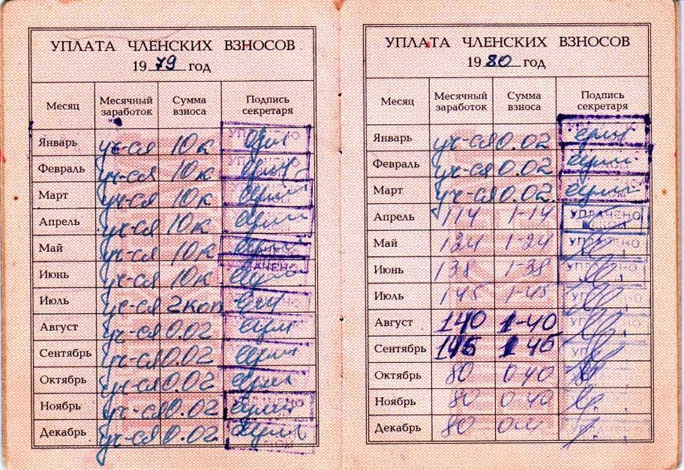 УПЛАТА ЧЛЕНСКИХ ВЗНОСОВ
1979 год
Месяц Месячный заработок Сумма взноса Подпись секретаря
Январь уч-ся 10к
Февраль уч-ся 10к
Март уч-ся 10к
Апрель уч-ся 10к
Май уч-ся 10к
Июнь уч-ся 10к
Июль уч-ся 2коп
Август уч-ся 0.02
Сентябрь уч-ся 0.02
Октябрь уч-ся 0.02
Ноябрь уч-ся 0.02
Декабрь уч-ся 0.02
УПЛАТА ЧЛЕНСКИХ ВЗНОСОВ
1980 год
Месяц Месячный заработок Сумма взноса Подпись секретаря
Январь уч-ся 0.02
Февраль уч-ся 0.02
Март уч-ся 0.02
Апрель 114 1-14 УПЛАЧЕНО
Май 124 1-24 УПЛАЧЕНО
Июнь 138 1-38 УПЛАЧЕНО
Июль 145 1-45
Август 140 1-40
Сентябрь 145 1 45
Октябрь 80 0 40
Ноябрь 80 0 40
Декабрь 80